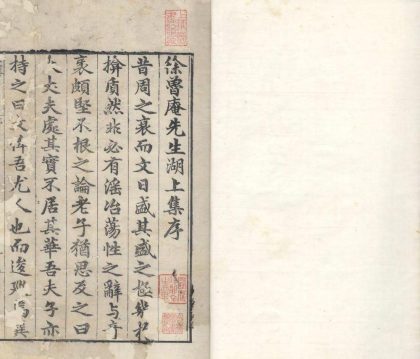 徐魯庵先生湖上集序
昔周之衰而文日盛其盛之極幾於
揜質然非必有淫冶蕩性之辭与
裏頗堅不根之論老子猶思反之曰
大丈夫處其實不居其華吾夫子亦
持之曰文猶吾尤人也而逡